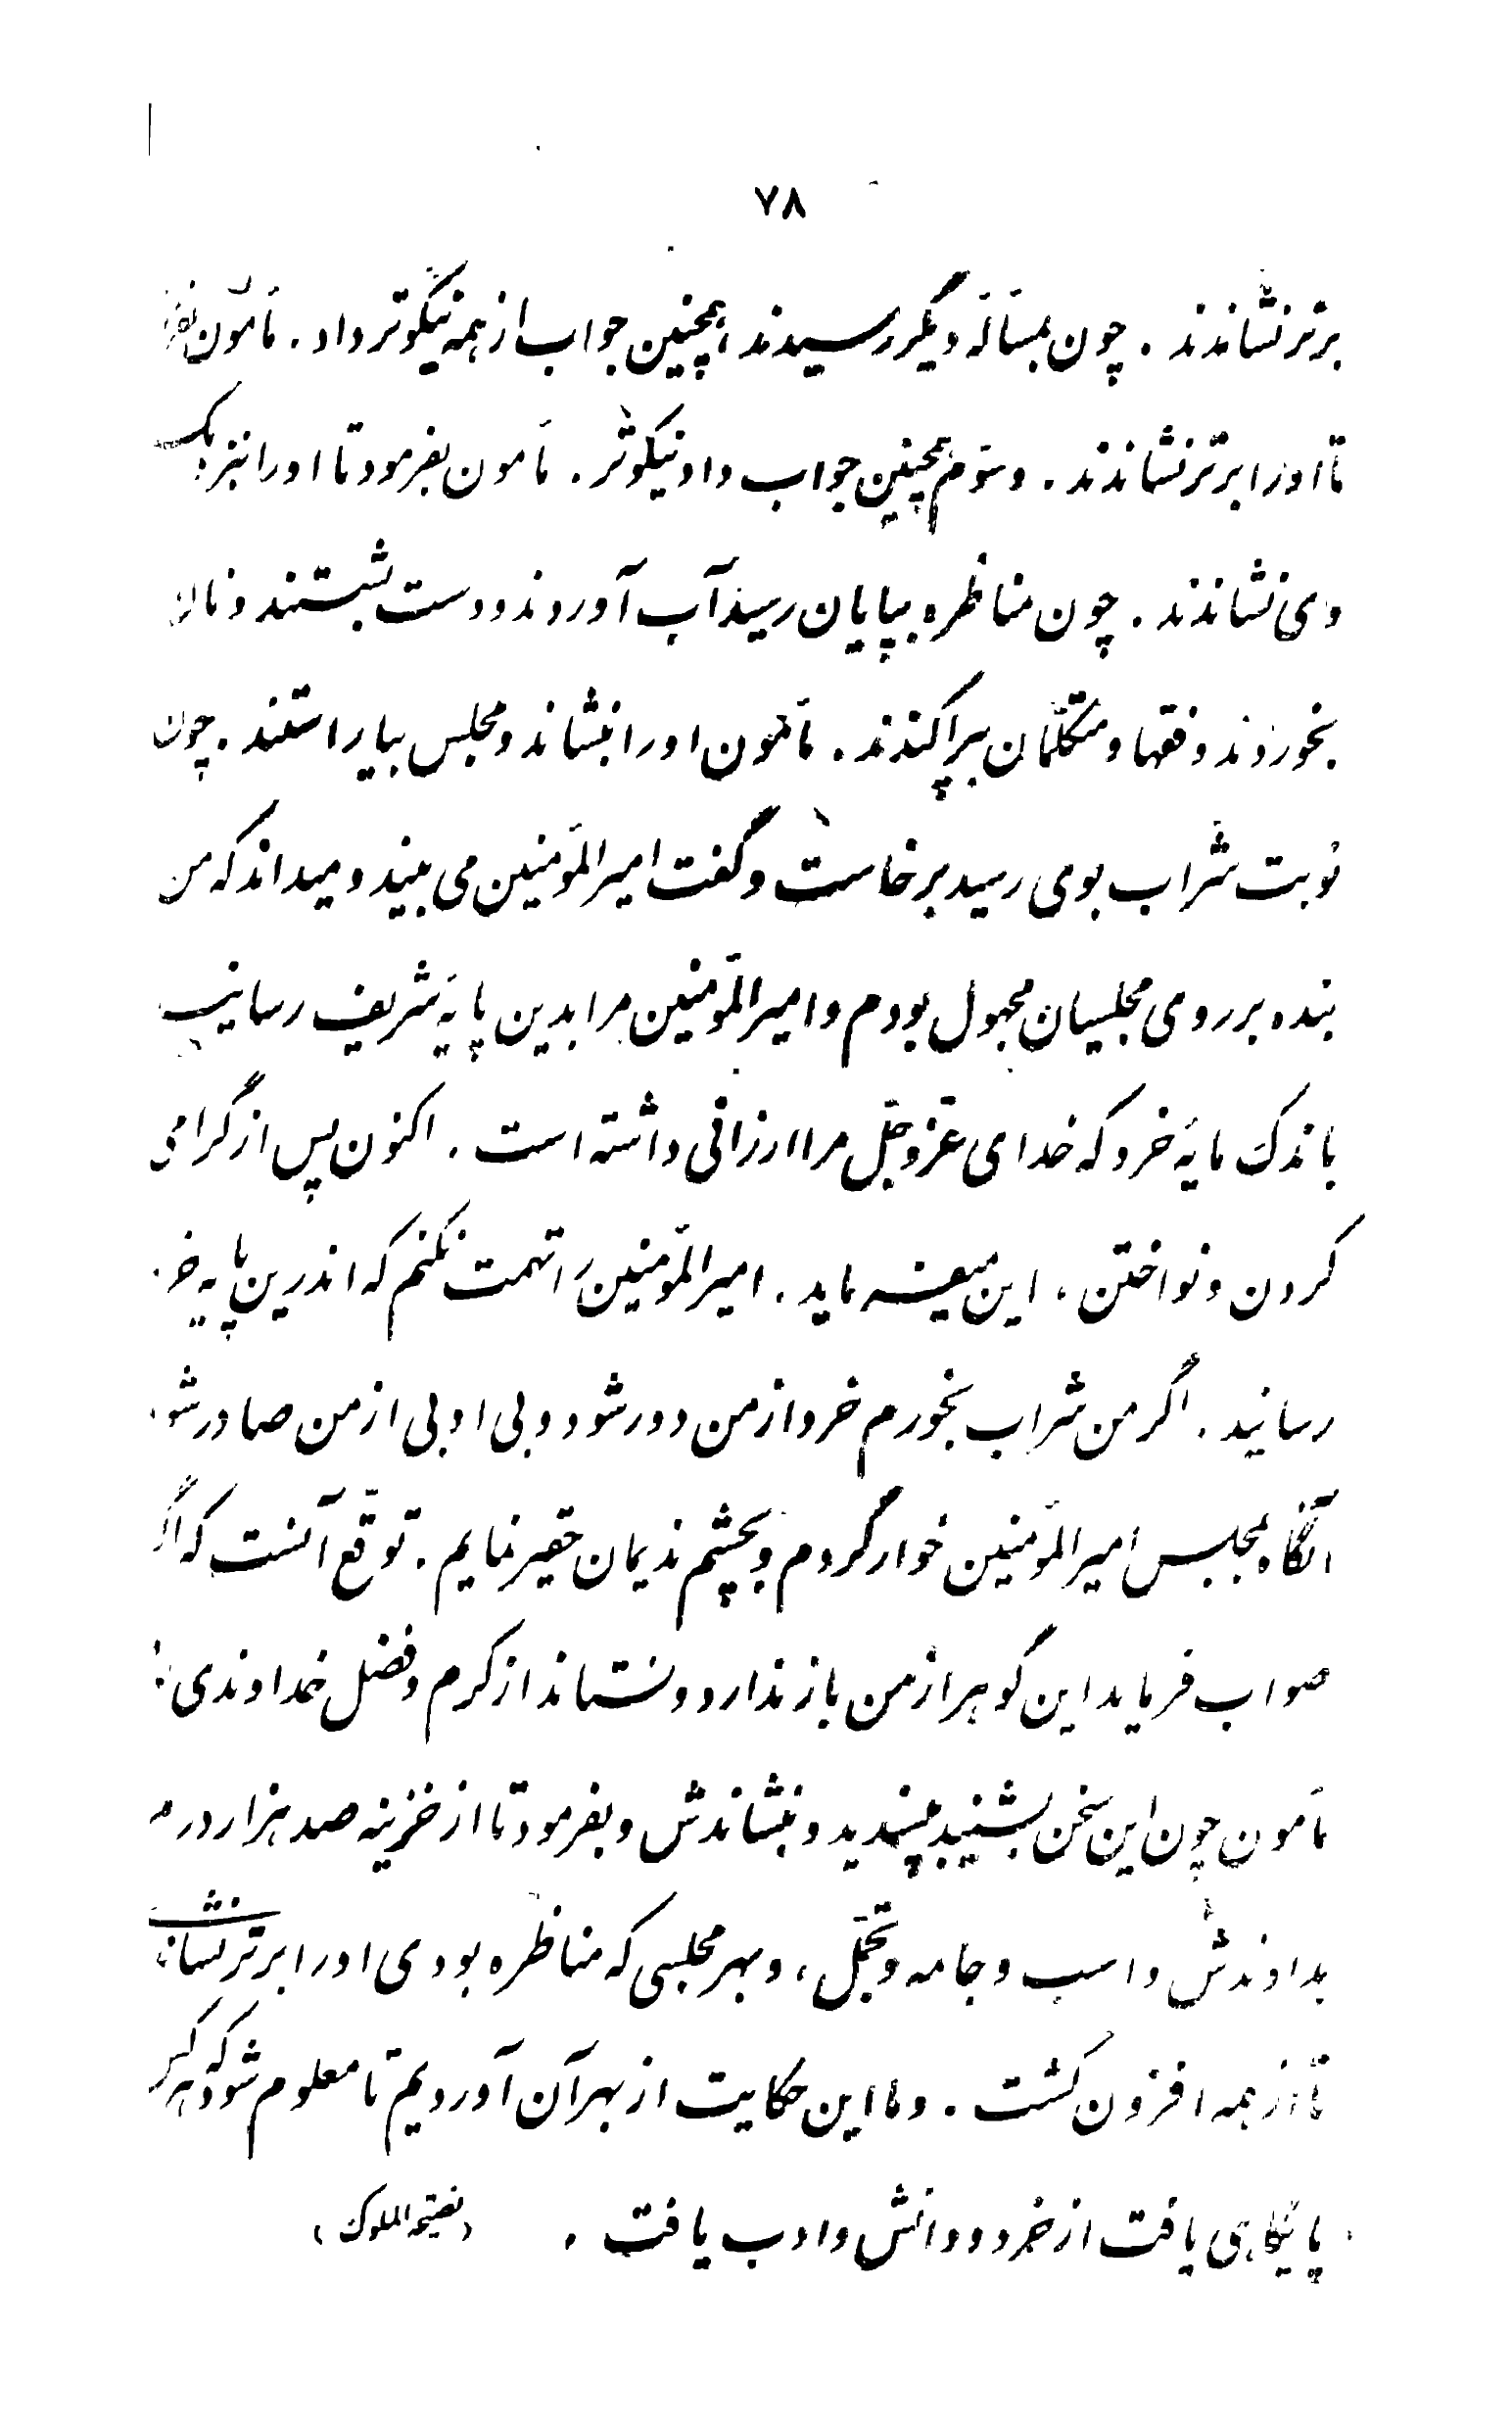 ۷۸
برتر نشاندند . چون بمسألهٔ دیگر رسیدند ، همچنین جواب از همه نیکوتر داد . مأمون
تا او را برتر نشاندند . و سوّم همچنین جواب داد نیکوتر . مأمون بفرمود تا او را بنزدیک
وی نشاندند . چون مناظره بپایان رسید آب آوردند و دست بشستند و
بخوردند و فقها و متکلّمان بپراکندند . مأمون او را بنشاند و مجلس بیاراستند . چون
نوبت شراب بوی رسید برخاست و گفت امیرالمؤمنین می بیند و میداند که من
بنده بر روی مجلسیان مجهول بودم و امیرالمؤمنین مرا بدین پایهٔ شریف رسانید
باندک مایهٔ خرد که خدای عزّوجّل مرا ارزانی داشته است . اکنون پس از گرامی
کردن و نواختن ، این میفرماید . امیرالمؤمنین را تهمت نکنم که اندرین پایه
رسانید . اگر من شراب بخورم خرد از من دور شود و بی ادبی از من صادر شود
آنگاه بمجلس امیرالمؤمنین خوار گردم و بچشم ندیمان حقیر نمایم . توقّع آنست که اگر
صواب فرماید این گوهر از من باز ندارد و نستاند از کرم و فضل خداوندی
مأمون چون این سخن بشنید بپسندید و بنشاندش و بفرمود تا از خزینه صد هزار درم
بدادندش و اسب و جامه و تجمّل ، و بهر مجلسی که مناظره بودی او را برتر
تا از همه افزون گشت . و ما این حکایت از بهر آن آوردیم تا معلوم شود که هر که
پایگاهی یافت از خرد و دانش و ادب یافت . (نصیحةالملوک)